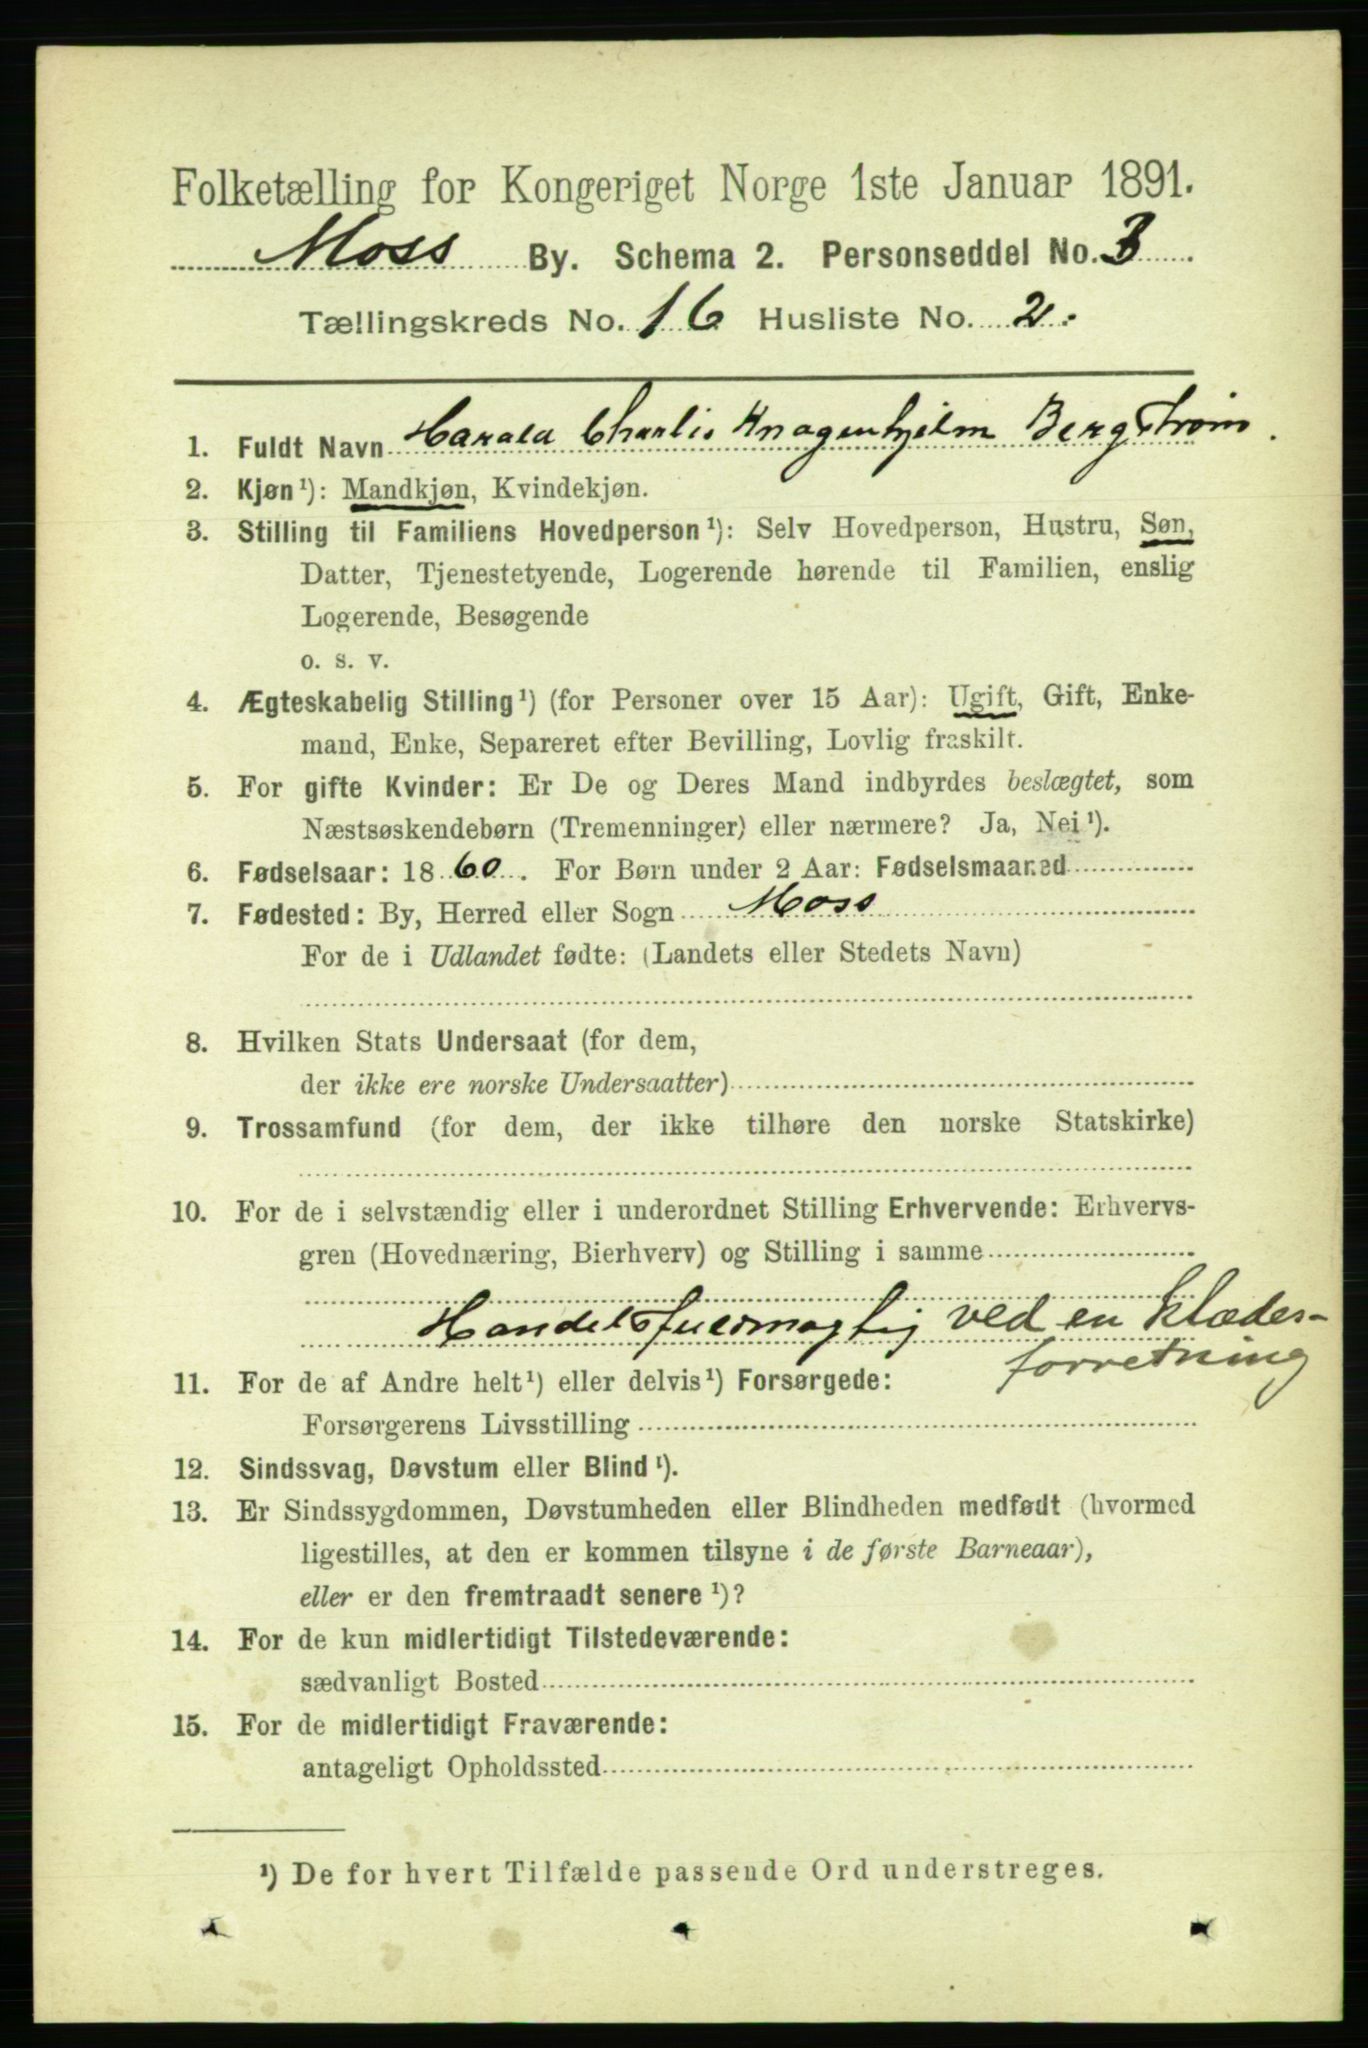 Folketælling for Kongeriget Norge 1ste Januar 1891.
Moss By. Schema 2. Personseddel No. 3
Tællingskreds No. 16 Husliste No. 2.
1. Fuldt Navn Harald Charlis Knagenhjelm Bergstrøm.
2. Kjøn¹): Mandkjøn, Kvindekjøn.
3. Stilling til Familiens Hovedperson¹): Selv Hovedperson, Hustru, Søn,
Datter, Tjenestetyende, Logerende hørende til Familien, enslig
Logerende, Besøgende
o. s. v.
4. Ægteskabelig Stilling¹) (for Personer over 15 Aar): Ugift, Gift, Enke-
mand, Enke, Separeret efter Bevilling, Lovlig fraskilt.
5. For gifte Kvinder: Er De og Deres Mand indbyrdes beslægtet, som
Næstsøskendebørn (Tremenninger) eller nærmere? Ja, Nei¹).
6. Fødselsaar: 1860. For Børn under 2 Aar: Fødselsmaaned
7. Fødested: By, Herred eller Sogn Moss
For de i Udlandet fødte: (Landets eller Stedets Navn)
8. Hvilken Stats Undersaat (for dem,
der ikke ere norske Undersaatter)
9. Trossamfund (for dem, der ikke tilhøre den norske Statskirke)
10. For de i selvstændig eller i underordnet Stilling Erhvervende: Erhvervs-
gren (Hovednæring, Bierhverv) og Stilling i samme
Handelsfuldmægtig ved en Klædes-
forretning
11. For de af Andre helt¹) eller delvis¹) Forsørgede:
Forsørgerens Livsstilling
12. Sindssvag, Døvstum eller Blind¹).
13. Er Sindssygdommen, Døvstumheden eller Blindheden medfødt (hvormed
ligestilles, at den er kommen tilsyne i de første Barneaar),
eller er den fremtraadt senere¹)?
14. For de kun midlertidigt Tilstedeværende:
sædvanligt Bosted
15. For de midlertidigt Fraværende:
antageligt Opholdssted
¹) De for hvert Tilfælde passende Ord understreges.